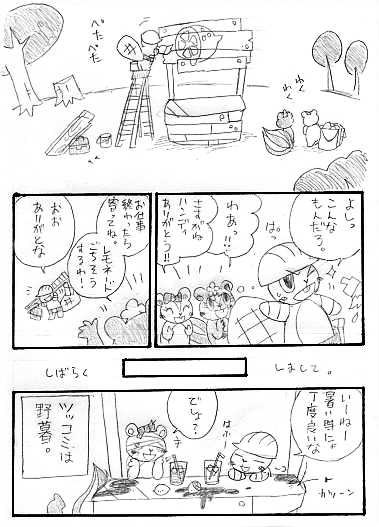 ぺたぺた
わく
わく
よしっ
こんな
もんだろ。
ぱっ
わあっ!!
さすがね
ハンディ
ありがとう!!
お仕事
終わったら
寄ってって。
レモネード
ごちそう
するわ!
おお
ありがとな
しばらく
しまして。
いーねー
暑い時にゃ
丁度良いな
カラーン
でしょ?
ツッコミは
野暮。